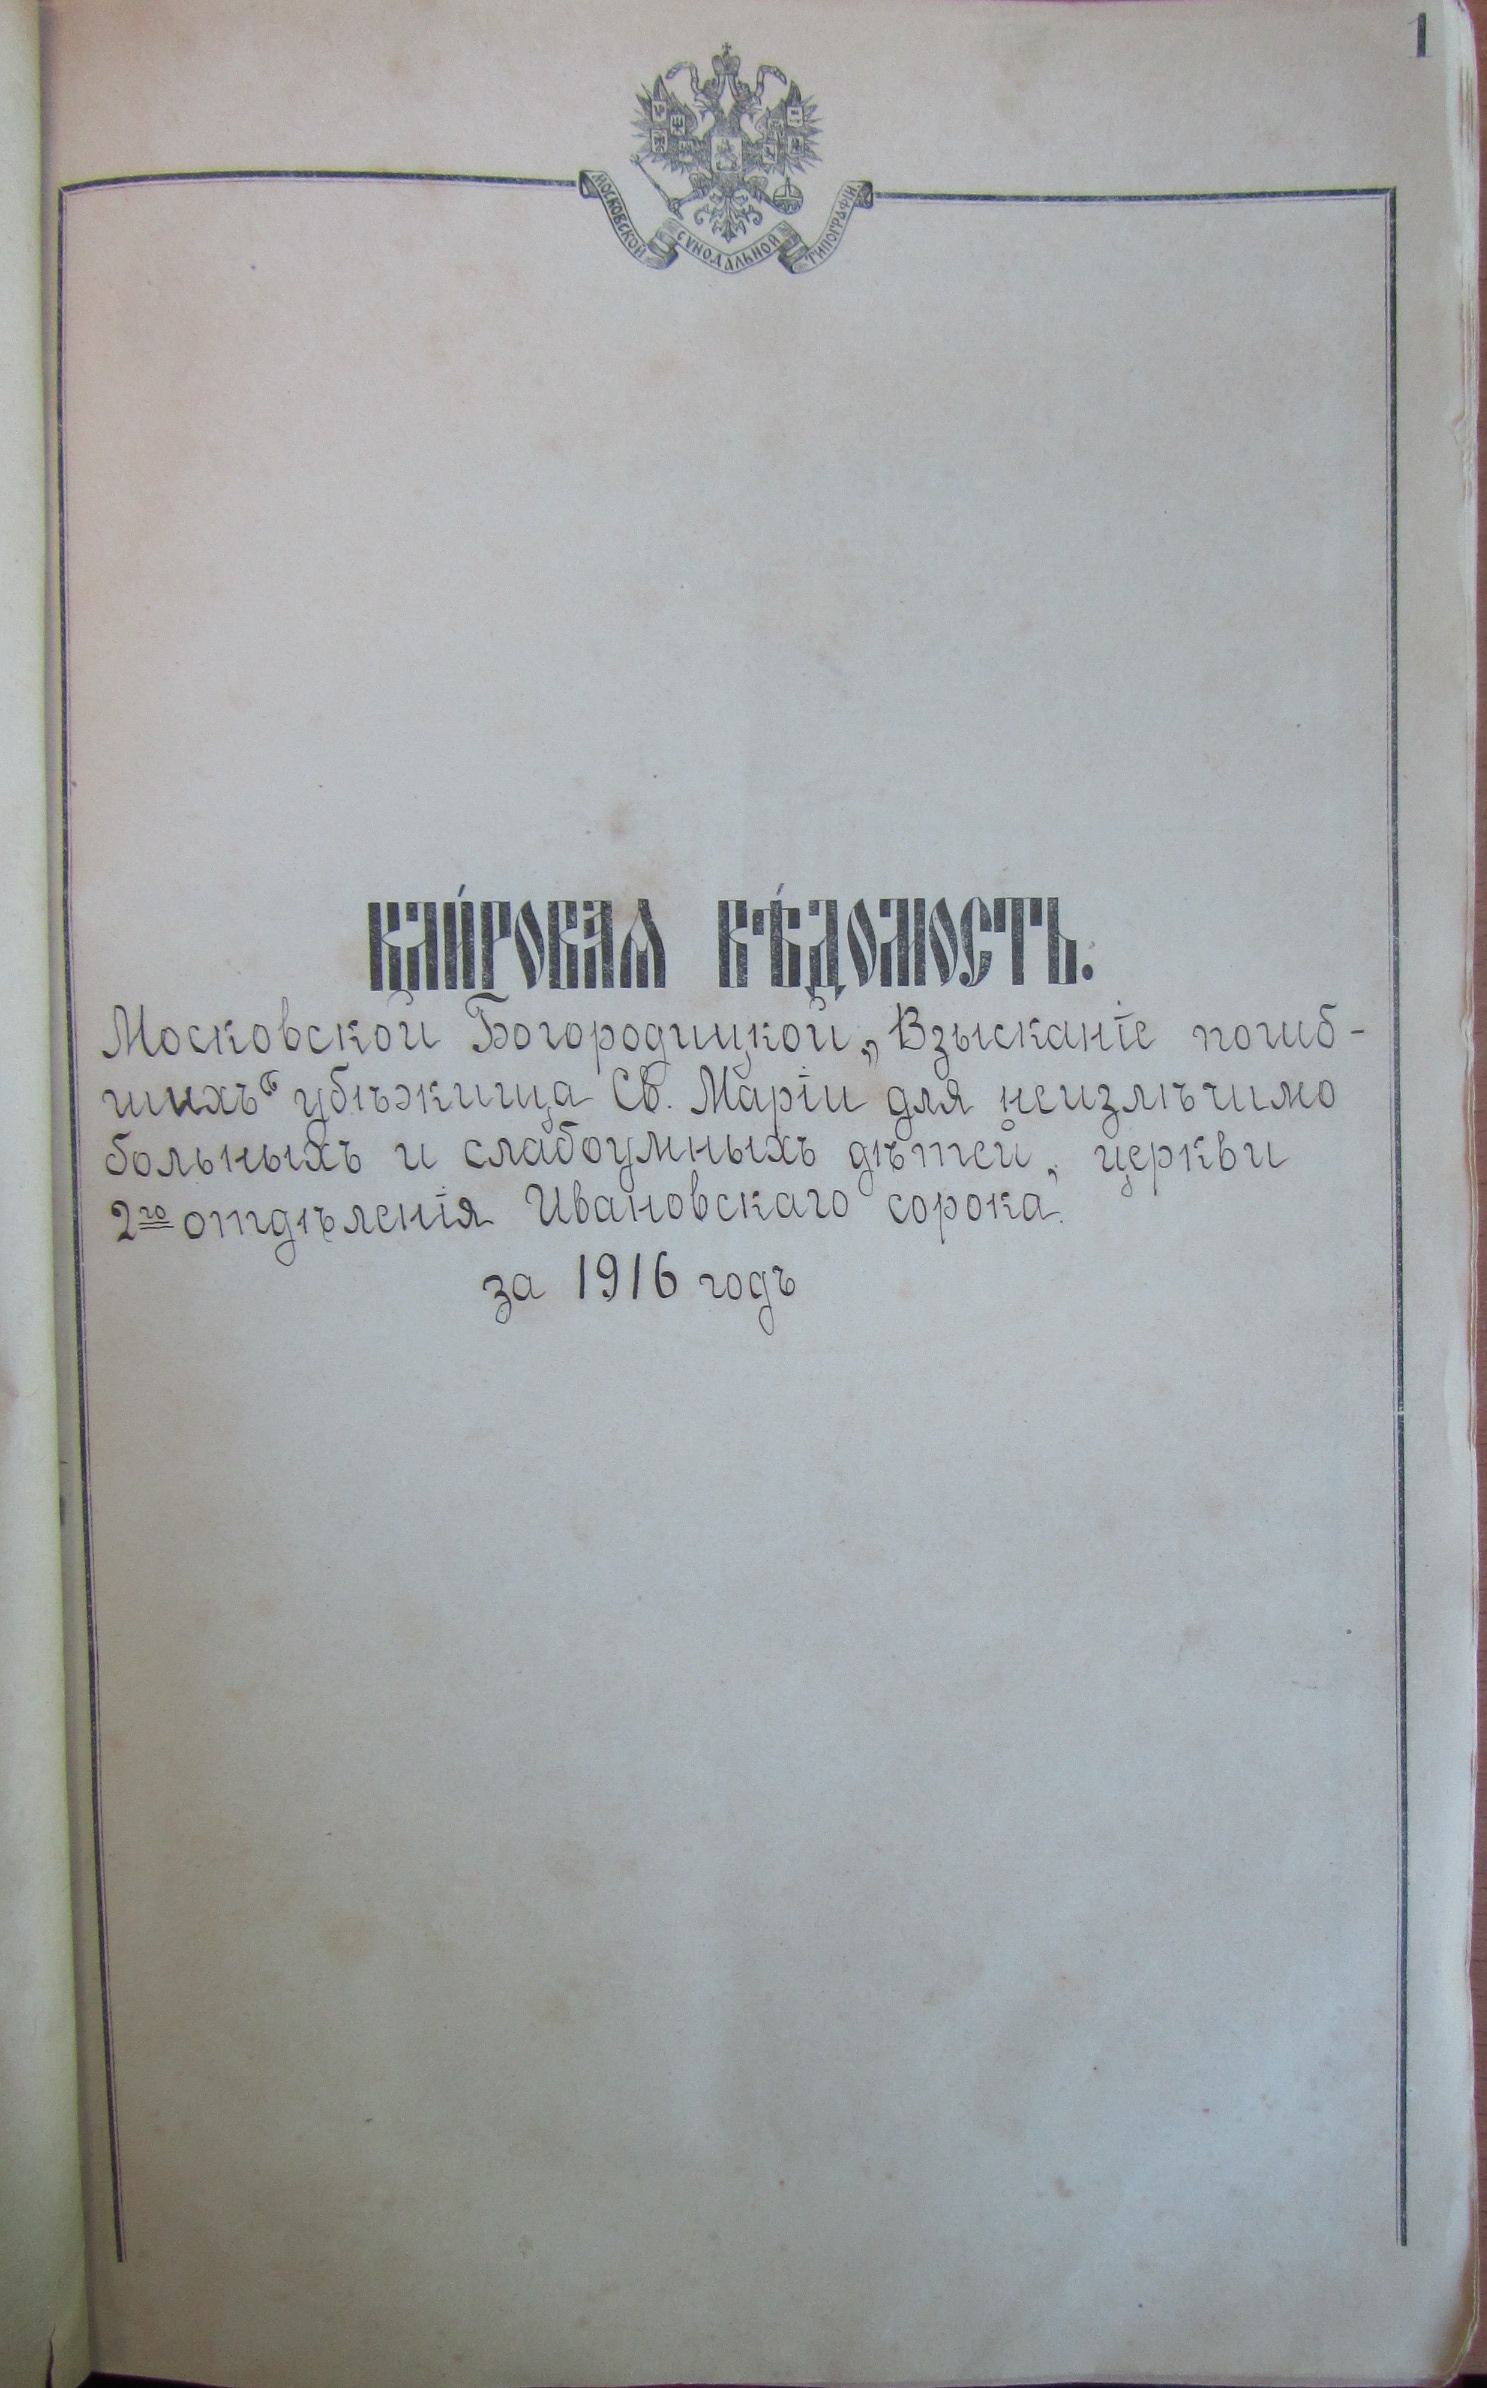 1
МОСКОВСКОЙ СѴНОДАЛЬНОЙ ТИПОГРАФІИ
КЛИ́РОВАѦ ВѢ́ДОМОСТЬ.
Московской Богородицкой, „Взысканіе погиб-
шихъ“ убѣжища Св. Маріи для неизлѣчимо
больныхъ и слабоумныхъ дѣтей, церкви
2го отдѣленія Ивановскаго сорока.
за 1916 годъ